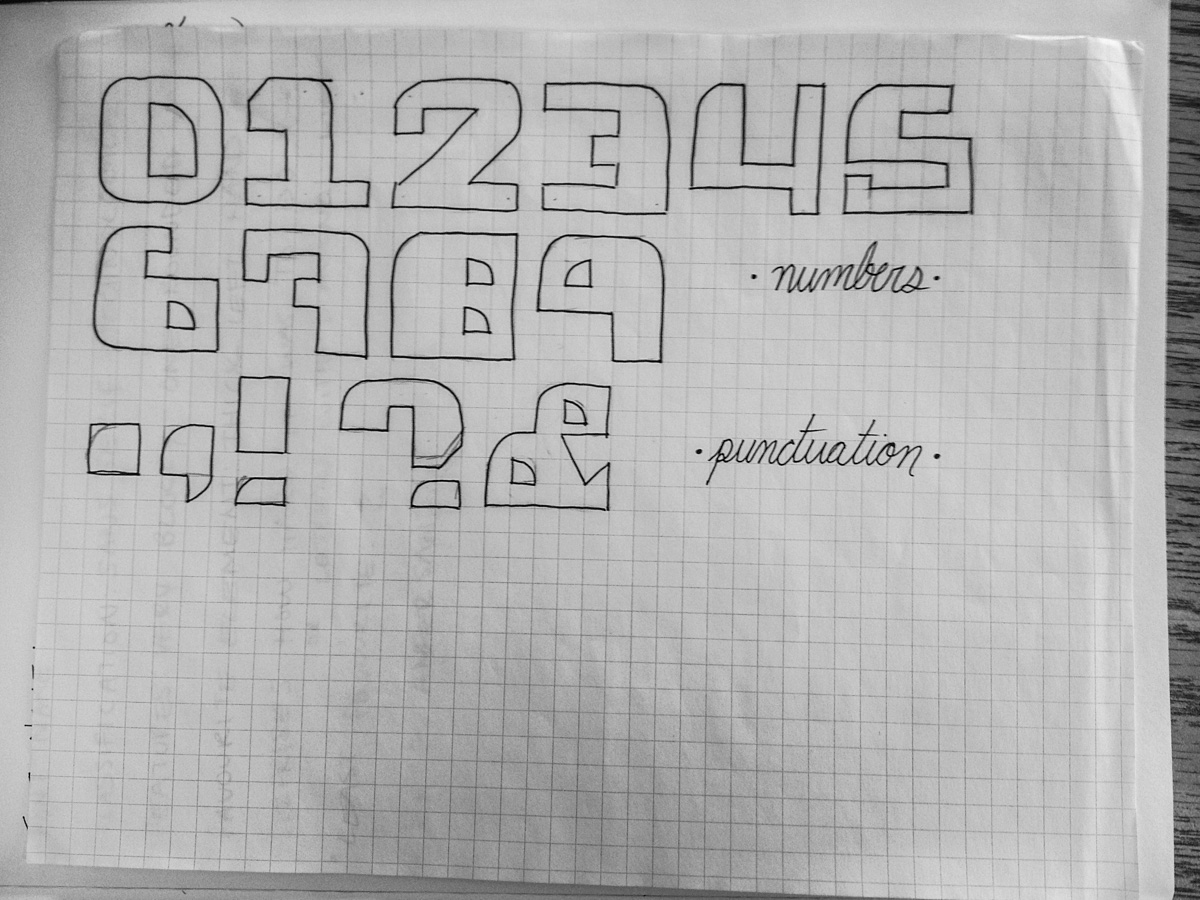 012345
6789 · numbers ·
.,!?& · punctuation ·